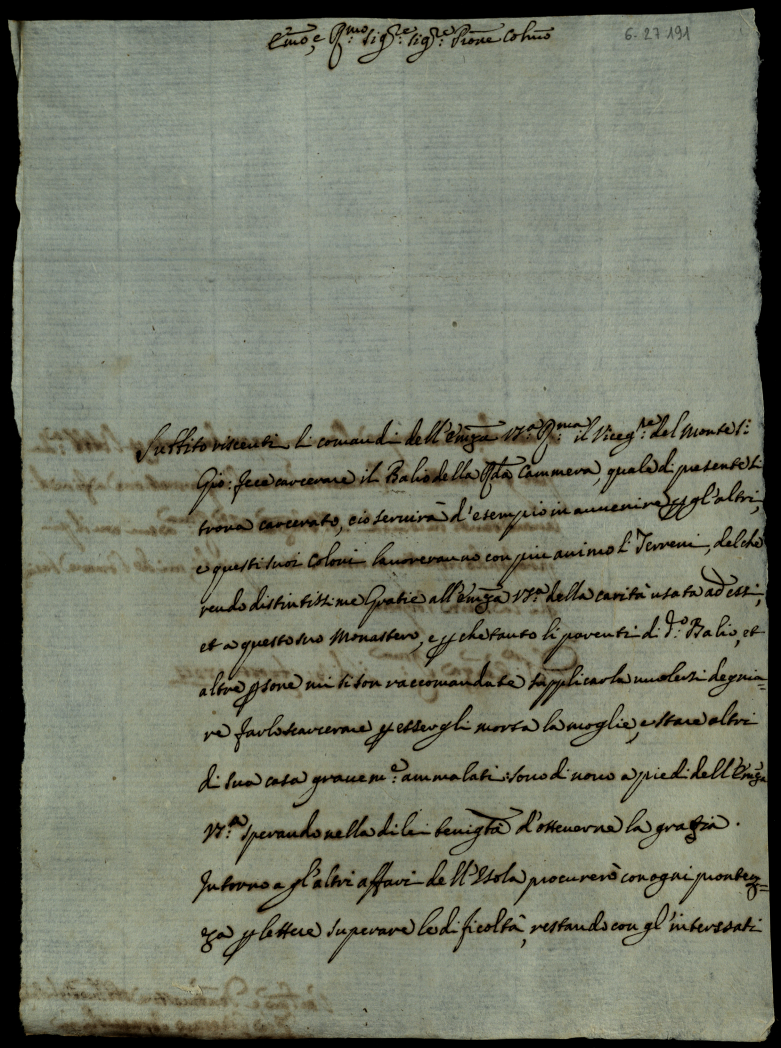 Emo, e Rmo: Sigre: Sigre Prone Colmo
6-27 191
Subbito viscenti li comandi dell'Emza V:ra R:ma il Viceg:te del Monte S:
Gio: fece carcerare il Balio della Rda Cammera, quale di presente si
trova carcerato, cio servirà d'esempio in avvenire p gl'altri,
e questi suoi Coloni lavoreranno con piu animo li Terreni, del che
rendo distintissime Gratie all'Emza V:ra della carità usata ad essi,
et a questo suo Monastero, e p che tanto li parenti di d:o Balio, et
altre psone mi si son raccomandate supplicarla volersi degnia=
re farlo scarcerare p essergli morta la moglie, e stare altri
di sua casa gravem:e ammalati: sono di novo a piedi dell'Emza
V:ra sperando nella di lei benigtà d'ottenerne la grazia.
Intorno a gl'altri affari dell'Isola procurerò con ogni prontez=
za p lettere superare le dificoltà, restando con gl'interssati